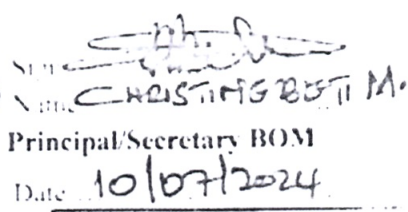 Sign
Name CHRISTINE BETT M.
Principal/Secretary BOM
Date 10/07/2024